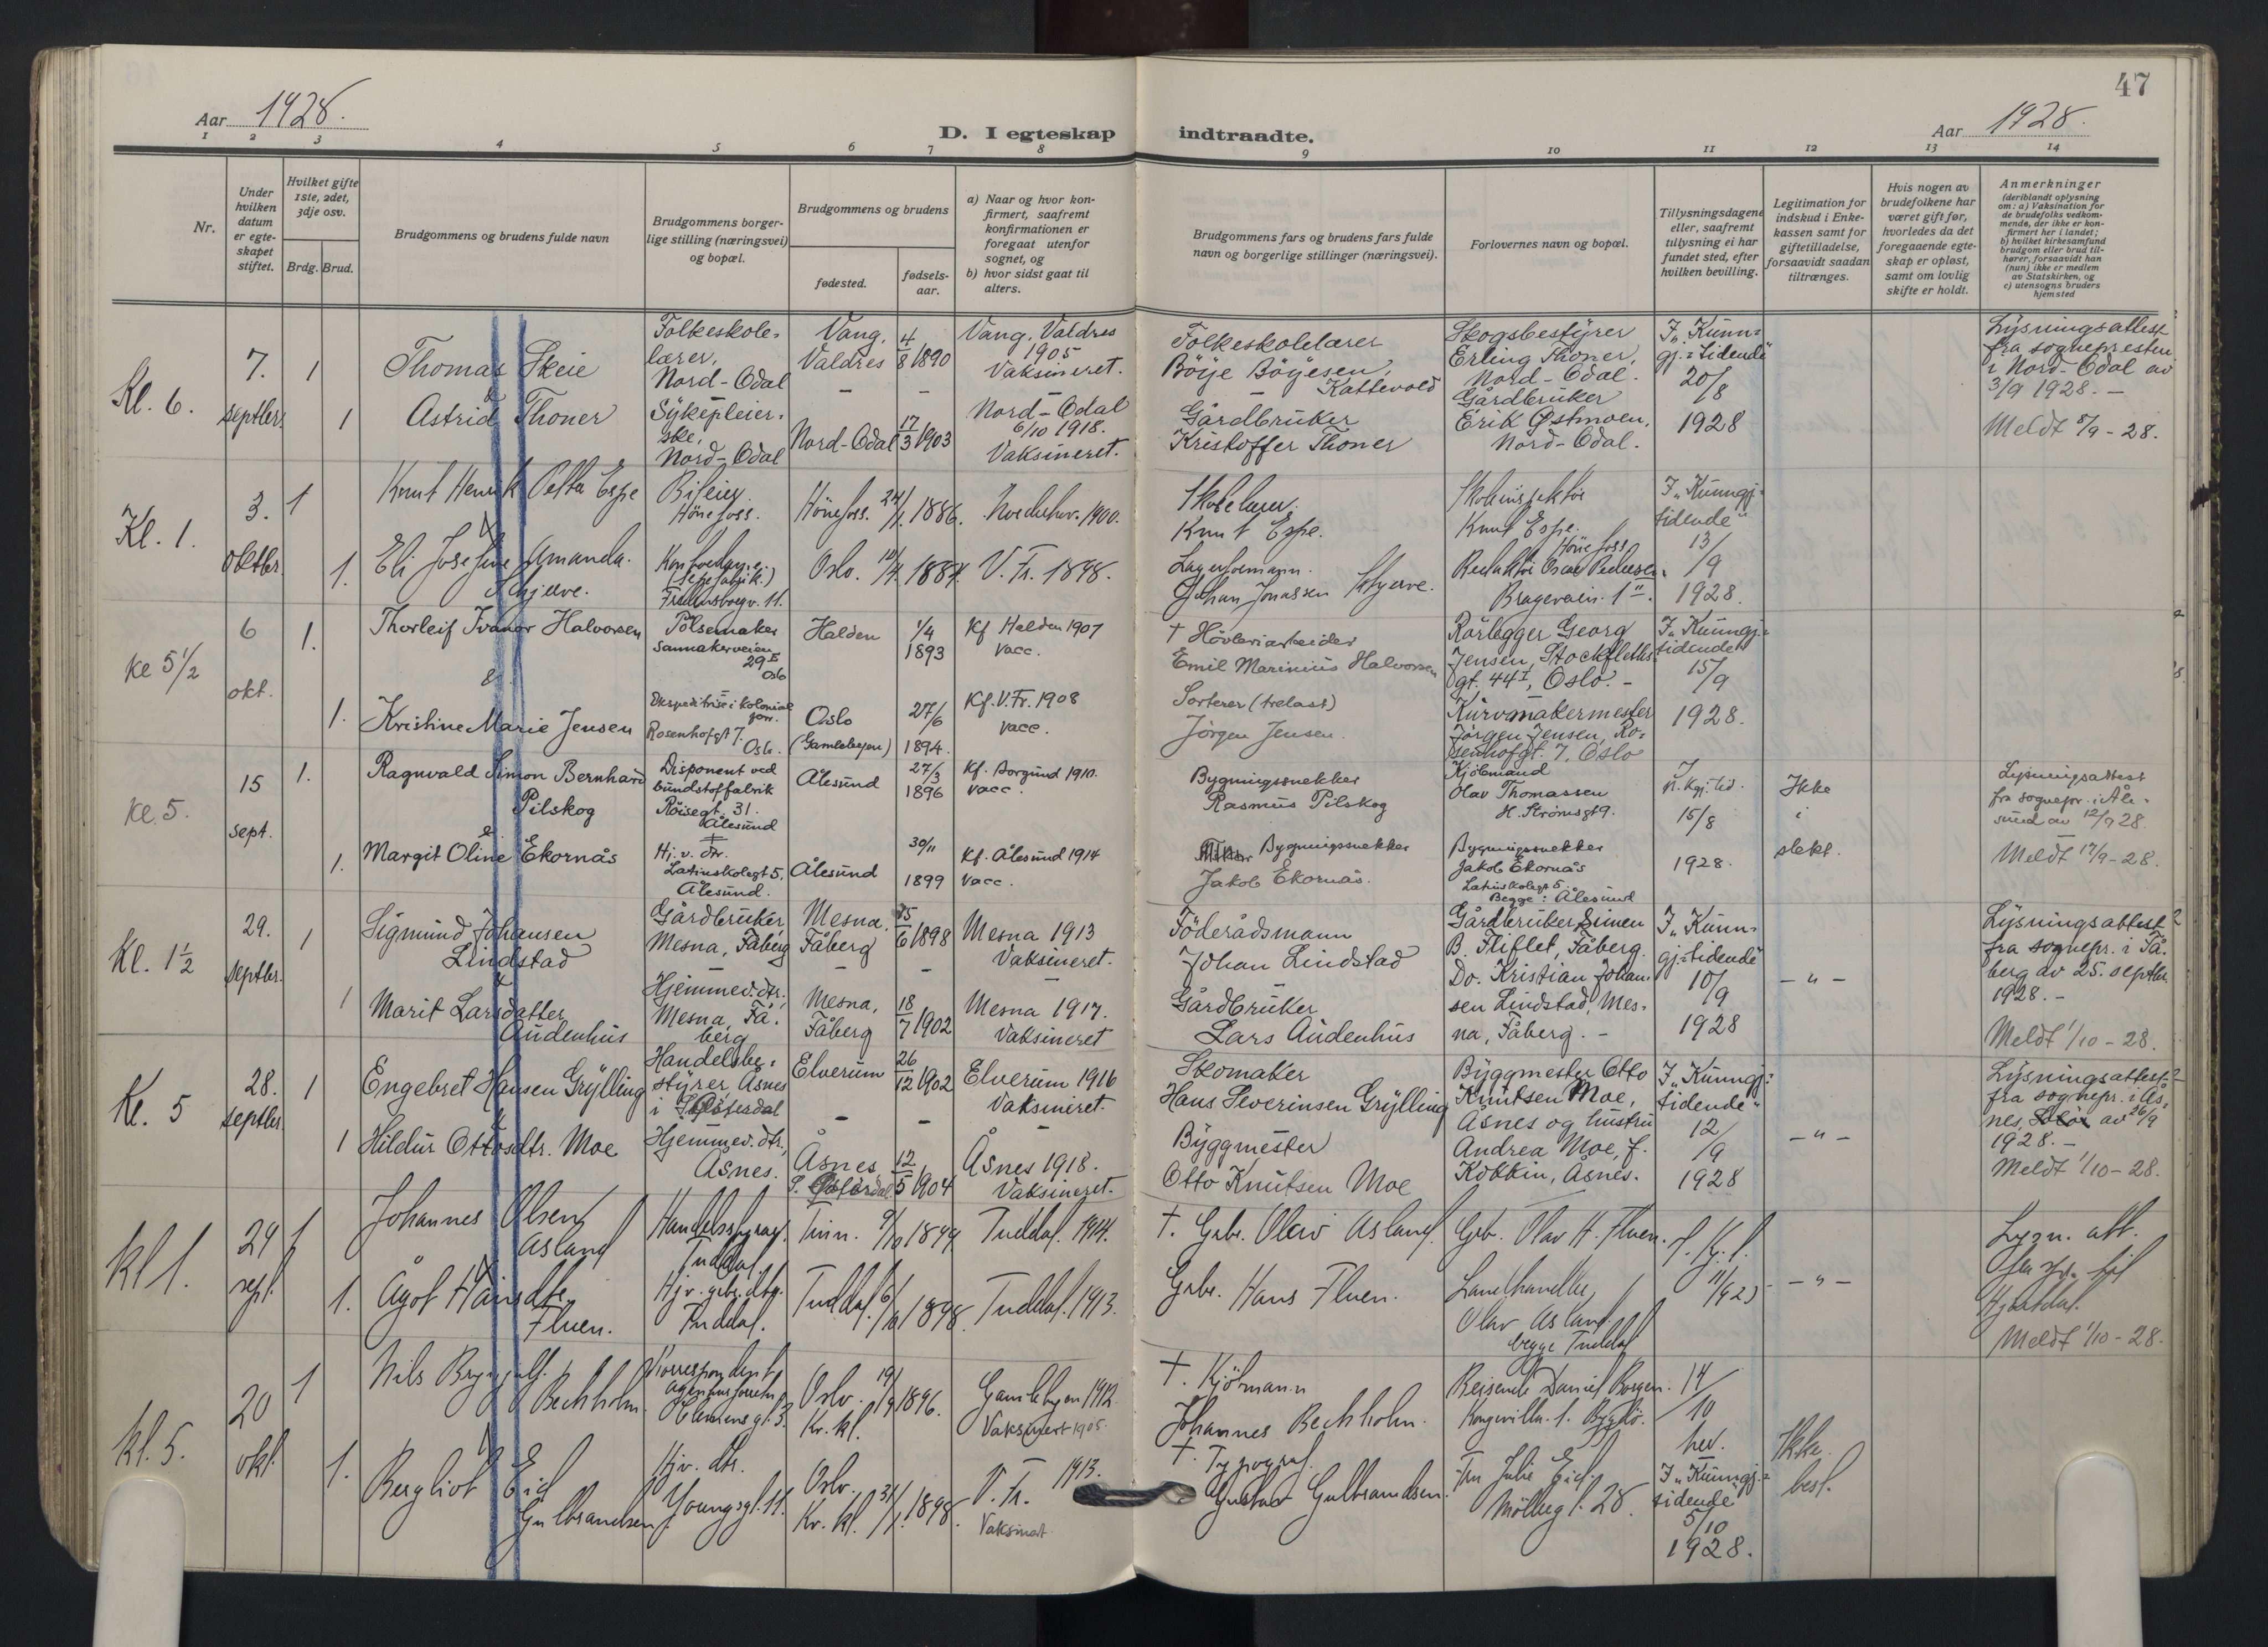 47
Aar 1928.
D. I egteskap indtraadte.
Aar 1928.
1 2 3 4 5 6 7 8 9 10 11 12 13 14
Nr.
Under hvilken datum er egteskapet stiftet.
Hvilket gifte 1ste, 2det, 3dje osv.
Brdg. Brud.
Brudgommens og brudens fulde navn
Brudgommens borgerlige stilling (næringsvei) og bopæl.
Brudgommens og brudens
fødested.
fødselsaar.
a) Naar og hvor konfirmert, saafremt konfirmationen er foregaat utenfor sognet, og
b) hvor sidst gaat til alters.
Brudgommens fars og brudens fars fulde navn og borgerlige stillinger (næringsvei).
Forlovernes navn og bopæl.
Tillysningsdagene eller, saafremt tillysning ei har fundet sted, efter hvilken bevilling.
Legitimation for indskud i Enkekassen samt for giftetilladelse, forsaavidt saadan tiltrænges.
Hvis nogen av brudefolkene har været gift før, hvorledes da det foregaaende egteskap er opløst, samt om lovlig skifte er holdt.
Anmerkninger (deriblandt oplysning om: a) Vaksination for de brudefolks vedkommende, der ikke er konfirmert her i landet; b) hvilket kirkesamfund brudgom eller brud tilhører, forsaavidt han (hun) ikke er medlem av Statskirken, og c) utensogns bruders hjemsted
Kl. 6.
7. septbr.
1
Thomas Skeie
&
Folkeskolelærer, Nord-Odal
Vang, Valdres
4/8 1890
Vang, Valdres 1905 Vaksineret.
Folkeskolelærer Böije Böyesen, Kattevold
Skogsbestyrer Erling Thoner, Nord-Odal.
I „Kunngj.=tidende" 20/8 1928
Lysningsattest fra sognepresten i Nord-Odal av 3/9 1928. -
Meldt 8/9 - 28.
1
Astrid Thoner
Sykepleierske, Nord-Odal
Nord-Odal
17/3 1903
Nord-Odal 6/10 1918. Vaksineret.
Gårdbruker Kristoffer Thoner
Gårdbruker Erik Østmoen, Nord-Odal.
Kl. 1.
3. oktbr.
1
Knut Henrik Espe
Hönefoss.
Hönefoss. 24/1 1886.
1900.
Skolelærer. Knut Espe.
Skoleinspektör Knut Espe. Hönefoss
I „Kunngj.=tidende" 13/9 1928.
1.
Eli Josefine Amanda. Schjerve.
Fredensborgv. 11.
Oslo.
V. Fr. 1898.
Johan Jonassen Schjerve.
Redaktör Oscar Pedersen.
Kl 5 1/2
6 okt.
1.
Thorleif Ivanor Halvorsen
&
Pölsemaker Sannakerveien 29 II Oslo
Halden
1/4 1893
Kf Halden 1907 vacc.
† Hövleriarbeider Emil Marinius Halvorsen
Rörlegger Georg Jensen, Stockfleths gt. 44 I, Oslo. -
I „Kunngj.=tidende" 15/9 1928.
1.
Kristine Marie Jensen
Ekspeditrise i kolonial forr. Rosenhofgt 7. Oslo.
Oslo (Gamlebyen)
27/6 1894.
Kf. V. Fr. 1908 vacc.
Sorterer (trelast) Jörgen Jensen.
Kurvmakermester Jörgen Jensen, Rosenhofgt. 7, Oslo
Kl. 5.
15 sept.
1.
Ragnvald Simon Bernhard Pilskog
&
Disponent ved bundstoffabrik Röisegt. 31. Ålesund
Ålesund
27/3 1896
Kf. Borgund 1910. vacc.
Bygningssnekker Rasmus Pilskog
Kjöbmand Olav Thomassen H. Strömsgt 9.
I N. Kgj. tid. 15/8 1928.
Ikke i slekt.
Lysningsattest fra sognepr. i Ålesund av 12/9 28.
Meldt 17/9 - 28.
1.
Margit Oline Ekornås
Hj. v. dtr. Latinskolegt 5. Ålesund.
Ålesund
30/11 1899
Kf. Ålesund 1914 vacc.
Bygningssnekker Jakob Ekornås.
Bygningssnekker Jakob Ekornås Latinskolegt 5. Begge: Ålesund
Kl. 1 1/2
29. septbr.
1
Sigmund Johansen Lindstad
&
Gårdbruker Mesna, Fåberg
Mesna, Fåberg
6 1898
Mesna 1913 Vaksineret.
Föderådsmann Johan Lindstad
Gårdbruker Simen B. Fliflet, Fåberg.
I „Kunngj.=tidende" 10/9 1928
- " -
Lysningsattest fra sognepr. i Fåberg av 25. septbr. 1928. -
Meldt 1/10 - 28.
1
Marit Larsdatter Audenhus
Hjemmev. dtr., Mesna, Fåberg
Mesna, Fåberg
18/7 1902
Mesna 1917. Vaksineret
Gårdbruker Lars Audenhus
Do. Kristian Johansen Lindstad, Mesna, Fåberg. -
Kl. 5
28. septbr.
1
Engebret Hansen Grylling
&
Handelsbestyrer Åsnes i
Elverum
26/12 1902
Elverum 1916 Vaksineret.
Skomaker Hans Severinsen Grylling
Byggmester Otto Knutsen Moe, Åsnes og hustru
I „Kunngj.=tidende" 12/9 1928
- " -
Lysningsattest fra sognepr. i Åsnes, av 26/9 1928. -
Meldt 1/10 - 28.
1
Hildur Ottosdtr. Moe
Hjemmev. dtr., Åsnes.
Åsnes
12/5 1904
Åsnes 1918. Vaksineret.
Byggmester Otto Knutsen Moe
Andrea Moe, f. Kokkin, Åsnes.
Kl 1.
29 sept.
1
Johannes Olsen Åsland
&
Tuddal.
Tinn.
9/10 1899
Tuddal. 1914.
†. Grbr. Olav Åsland.
Grb. Olav H. Fluen.
- " -
Lysn. att. Hjartdal.
Meldt 1/10 - 28.
1.
Ågot Hansdtr. Fluen.
Hjv. grbr. dtr. Tuddal.
Tuddal.
6/10 1898.
Tuddal. 1913.
Grbr. Hans Fluen.
Landhandler Olav Åsland begge Tuddal
Kl. 5.
20 okt.
1
Nils Bechholm
&
Korrespondent Clemensgt. 3.
Oslo. Kr. kl.
19/9 1896.
Gamlebyen 1912. Vaksinert 1905.
†. Kjöbmann Johannes Bechholm.
Reisende Daniel Borgen. Kongevilla. 1. Bygdö.
14/10
I „Kunngj.=tidende" 5/10 1928.
Ikke besl.
1.
Bergliot Eid Gulbrandsen
Hjv. dtr. Youngsgt. 11.
Oslo. Kr. kl.
31/1 1898.
V. Fr. 1913. Vaksinert.
†. Typograf. Gustav Gulbrandsen.
Fru Julie Eid. Möllergt. 28.